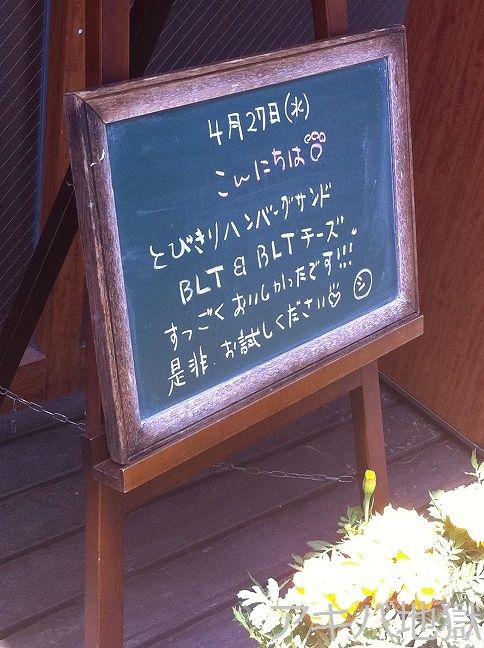 4月27日(水)
こんにちは
とびきりハンバーグサンド
BLT & BLTチーズ。
すっごくおいしかったです!!!
是非、お試しください♡ シ
アキバ地獄